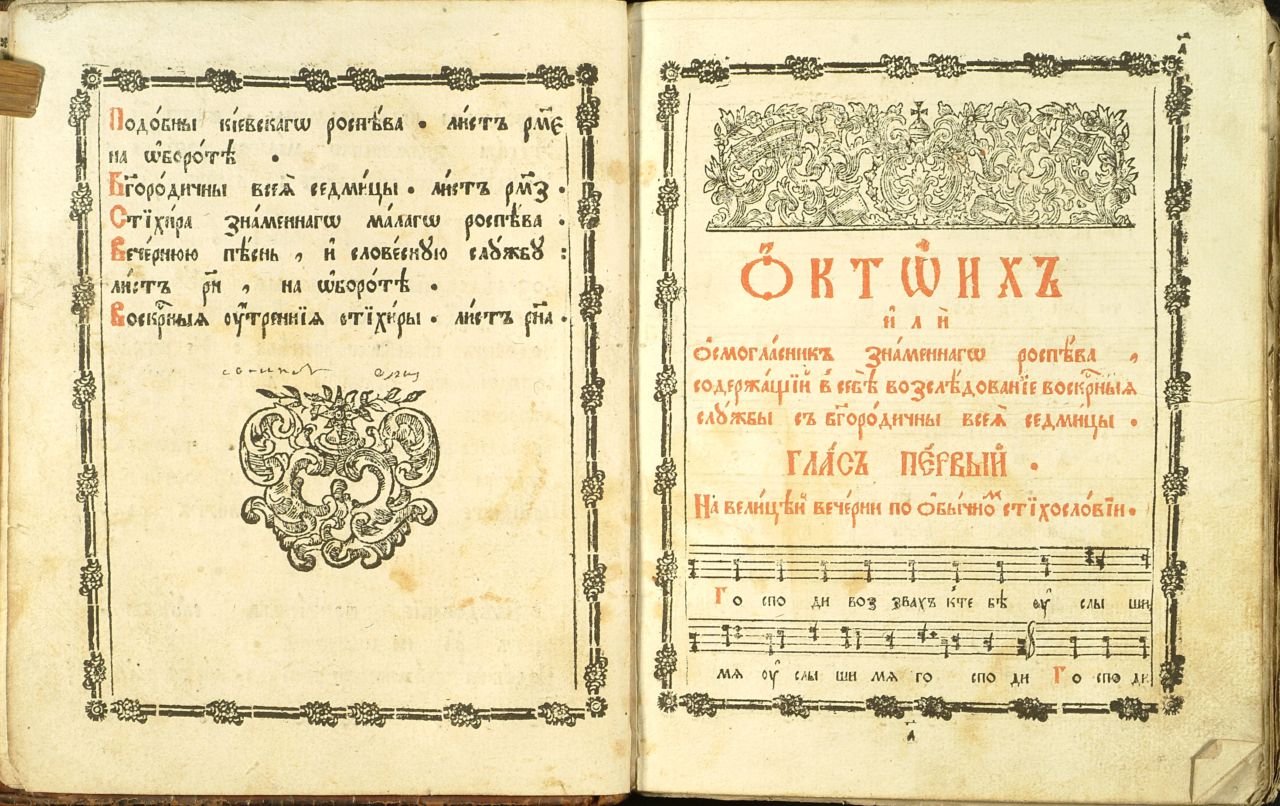 Подо́бны кі́евскагѡ роспѣ́ва . ли́стъ рм҃е
на ѡ҆боро́тѣ .
Бг҃оро́дичны всеѧ̀ седми́цы . ли́стъ рм҃з .
Стїхи́ра зна́меннагѡ ма́лагѡ роспѣ́ва .
Вече́рнюю пѣ́снь , и҆ слове́сную слꙋ́жбꙋ :
ли́стъ рн҃ , на ѡ҆боро́тѣ .
Воскр҃ныѧ ѹ҆́тренніѧ стїхи́ры . ли́стъ рн҃а .
а҃
Ѻ҆КТѠ́ИХЪ
и҆лѝ
Ѻ҆смогла́сникъ зна́меннагѡ роспѣ́ва ,
содержа́щїй в̾ себѣ̀ возслѣ́дованїе воскр҇ныѧ
слꙋ́жбы съ бг҃оро́дичны всеѧ̀ седми́цы .
ГЛА́СЪ ПЕ́РВЫЙ .
На вели́цѣй вече́рни по ѻ҆бы́чномъ стїхосло́вїи .
Го спо ди воз звахъ к̾те бѣ ѹ҆ слы ши
мѧ ѹ҆ слы ши мѧ го спо ди Го спо ди
а҃